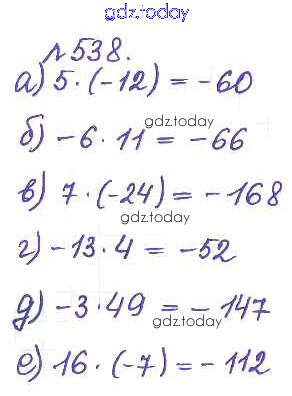 gdz.today
№538.
а) 5 · (-12) = -60
gdz.today
б) -6 · 11 = -66
в) 7 · (-24) = -168
gdz.today
г) -13 · 4 = -52
д) -3 · 49 = -147
gdz.today
е) 16 · (-7) = -112